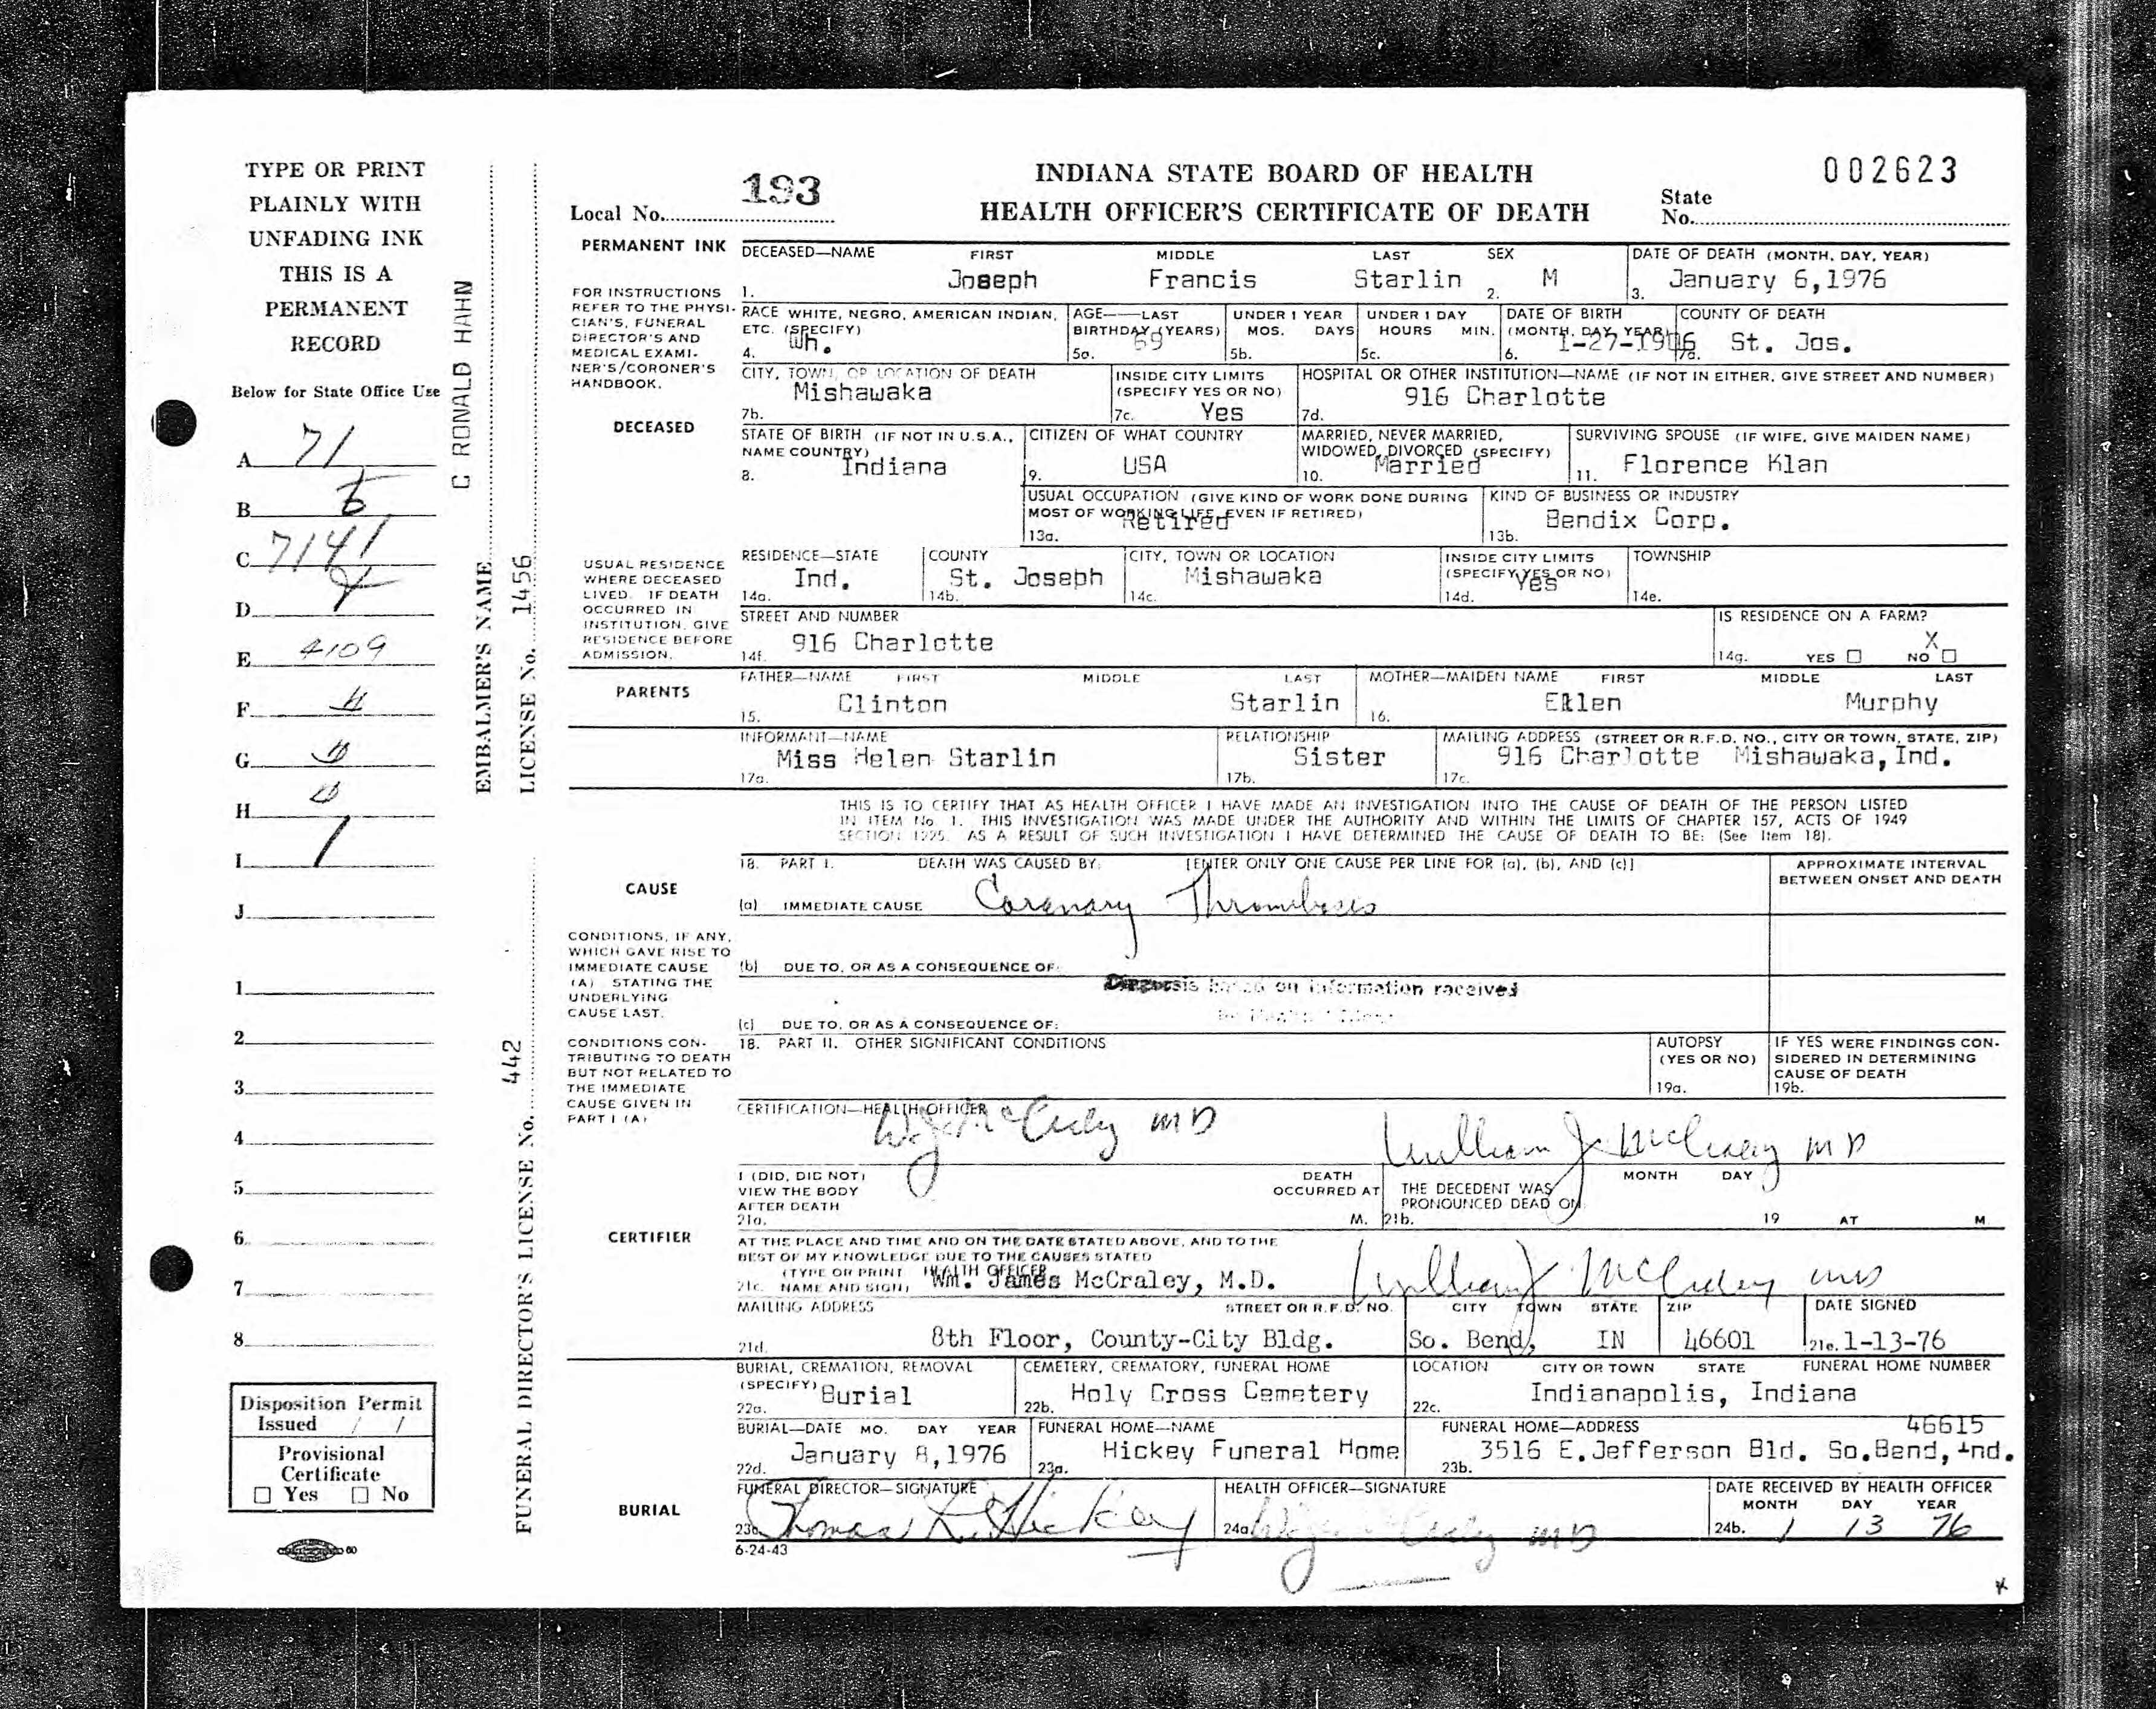 TYPE OR PRINT
PLAINLY WITH
UNFADING INK
THIS IS A
PERMANENT
RECORD
Below for State Office Use
A 71
B
C 7141
D
E 4109
F
G
H
I 1
J
1
2
3
4
5
6
7
8
Disposition Permit
Issued / /
Provisional
Certificate
☐ Yes ☐ No
60
EMBALMER'S NAME C RONALD HAHN
LICENSE No. 1456
FUNERAL DIRECTOR'S LICENSE No. 442
INDIANA STATE BOARD OF HEALTH
HEALTH OFFICER'S CERTIFICATE OF DEATH
Local No. 193
002623
State
No.
PERMANENT INK
FOR INSTRUCTIONS
REFER TO THE PHYSI-
CIAN'S, FUNERAL
DIRECTOR'S AND
MEDICAL EXAMI-
NER'S/CORONER'S
HANDBOOK.
DECEASED—NAME FIRST MIDDLE LAST SEX DATE OF DEATH (MONTH, DAY, YEAR)
1. Joseph Francis Starlin 2. M 3. January 6,1976
RACE WHITE, NEGRO, AMERICAN INDIAN, AGE—LAST UNDER 1 YEAR UNDER 1 DAY DATE OF BIRTH COUNTY OF DEATH
ETC. (SPECIFY) BIRTHDAY (YEARS) MOS. DAYS HOURS MIN. (MONTH, DAY, YEAR)
4. Wh. 5a. 69 5b. 5c. 6. 1-27-1906 7a. St. Jos.
DECEASED
CITY, TOWN, OR LOCATION OF DEATH INSIDE CITY LIMITS HOSPITAL OR OTHER INSTITUTION—NAME (IF NOT IN EITHER, GIVE STREET AND NUMBER)
(SPECIFY YES OR NO)
7b. Mishawaka 7c. Yes 7d. 916 Charlotte
STATE OF BIRTH (IF NOT IN U.S.A., CITIZEN OF WHAT COUNTRY MARRIED, NEVER MARRIED, SURVIVING SPOUSE (IF WIFE, GIVE MAIDEN NAME)
NAME COUNTRY) WIDOWED, DIVORCED (SPECIFY)
8. Indiana 9. USA 10. Married 11. Florence Klan
USUAL OCCUPATION (GIVE KIND OF WORK DONE DURING KIND OF BUSINESS OR INDUSTRY
MOST OF WORKING LIFE, EVEN IF RETIRED)
13a. Retired 13b. Bendix Corp.
USUAL RESIDENCE
WHERE DECEASED
LIVED. IF DEATH
OCCURRED IN
INSTITUTION, GIVE
RESIDENCE BEFORE
ADMISSION.
RESIDENCE—STATE COUNTY CITY, TOWN OR LOCATION INSIDE CITY LIMITS TOWNSHIP
(SPECIFY YES OR NO)
14a. Ind. 14b. St. Joseph 14c. Mishawaka 14d. Yes 14e.
STREET AND NUMBER IS RESIDENCE ON A FARM?
14f. 916 Charlotte 14g. YES ☐ NO ☐ X
PARENTS
FATHER—NAME FIRST MIDDLE LAST MOTHER—MAIDEN NAME FIRST MIDDLE LAST
15. Clinton Starlin 16. Ellen Murphy
INFORMANT—NAME RELATIONSHIP MAILING ADDRESS (STREET OR R.F.D. NO., CITY OR TOWN, STATE, ZIP)
17a. Miss Helen Starlin 17b. Sister 17c. 916 Charlotte Mishawaka, Ind.
THIS IS TO CERTIFY THAT AS HEALTH OFFICER I HAVE MADE AN INVESTIGATION INTO THE CAUSE OF DEATH OF THE PERSON LISTED
IN ITEM No. 1. THIS INVESTIGATION WAS MADE UNDER THE AUTHORITY AND WITHIN THE LIMITS OF CHAPTER 157, ACTS OF 1949
SECTION 1225. AS A RESULT OF SUCH INVESTIGATION I HAVE DETERMINED THE CAUSE OF DEATH TO BE: (See Item 18).
CAUSE
18. PART I. DEATH WAS CAUSED BY: [ENTER ONLY ONE CAUSE PER LINE FOR (a), (b), AND (c)] APPROXIMATE INTERVAL
BETWEEN ONSET AND DEATH
(a) IMMEDIATE CAUSE Coronary Thrombosis
CONDITIONS, IF ANY,
WHICH GAVE RISE TO
IMMEDIATE CAUSE
(A) STATING THE
UNDERLYING
CAUSE LAST.
(b) DUE TO, OR AS A CONSEQUENCE OF:
Diagnosis based on information received
(c) DUE TO, OR AS A CONSEQUENCE OF:
CONDITIONS CON-
TRIBUTING TO DEATH
BUT NOT RELATED TO
THE IMMEDIATE
CAUSE GIVEN IN
PART I (A)
18. PART II. OTHER SIGNIFICANT CONDITIONS AUTOPSY IF YES WERE FINDINGS CON-
(YES OR NO) SIDERED IN DETERMINING
CAUSE OF DEATH
19a. 19b.
CERTIFICATION—HEALTH OFFICER
WJ McCraley MD William J McCraley MD
CERTIFIER
I (DID, DID NOT) DEATH MONTH DAY
VIEW THE BODY OCCURRED AT THE DECEDENT WAS
AFTER DEATH PRONOUNCED DEAD ON
21a. M. 21b. 19 AT M
AT THE PLACE AND TIME AND ON THE DATE STATED ABOVE, AND TO THE
BEST OF MY KNOWLEDGE DUE TO THE CAUSES STATED
(TYPE OR PRINT HEALTH OFFICER
21c. NAME AND SIGN) Wm. James McCraley, M.D. William J McCraley MD
MAILING ADDRESS STREET OR R.F.D. NO. CITY TOWN STATE ZIP DATE SIGNED
21d. 8th Floor, County-City Bldg. So. Bend, IN 46601 21e. 1-13-76
BURIAL
BURIAL, CREMATION, REMOVAL CEMETERY, CREMATORY, FUNERAL HOME LOCATION CITY OR TOWN STATE FUNERAL HOME NUMBER
(SPECIFY)
22a. Burial 22b. Holy Cross Cemetery 22c. Indianapolis, Indiana
BURIAL—DATE MO. DAY YEAR FUNERAL HOME—NAME FUNERAL HOME—ADDRESS 46615
22d. January 8,1976 23a. Hickey Funeral Home 23b. 3516 E.Jefferson Bld. So.Bend, Ind.
FUNERAL DIRECTOR—SIGNATURE HEALTH OFFICER—SIGNATURE DATE RECEIVED BY HEALTH OFFICER
MONTH DAY YEAR
23c. Thomas L. Hickey 24a. WJ McCraley MD 24b. 1 13 76
6-24-43